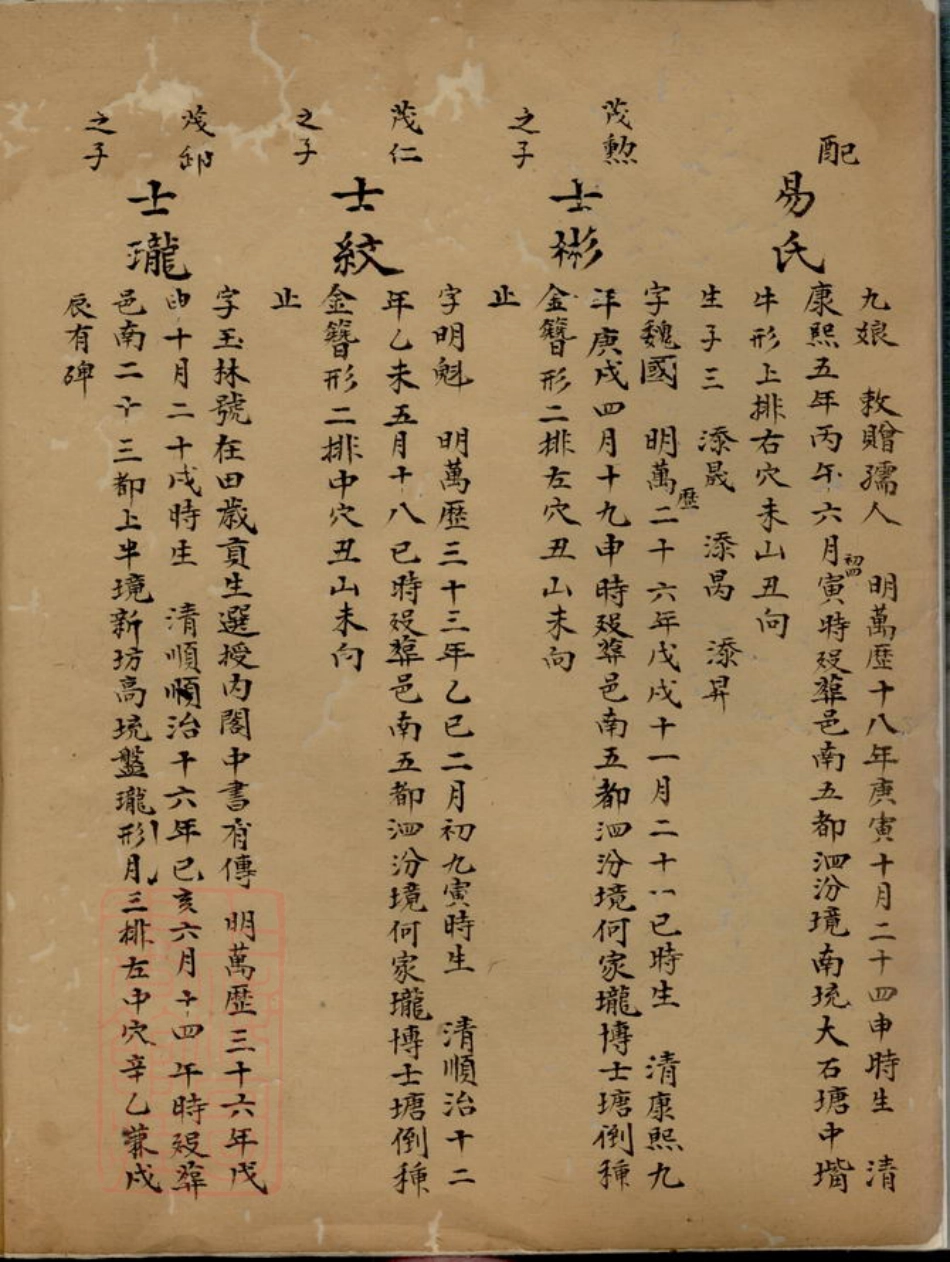 配
易氏
九娘 敕贈孺人 明萬歷十八年庚寅十月二十四申時生 清
康熙五年丙午六月初四寅時歿葬邑南五都泗汾境南垸大石塘中塅
牛形上排右穴未山丑向
生子三 添晟 添昺 添昇
茂勲
之子
士彬
字魏國 明萬歷二十六年戊戌十一月二十八巳時生 清康熙九
年庚戌四月十九申時歿葬邑南五都泗汾境何家瓏博士塘倒種
金簪形二排左穴丑山未向
止
茂仁
之子
士紋
字明魁 明萬歷三十三年乙巳二月初九寅時生 清順治十二
年乙未五月十八巳時歿葬邑南五都泗汾境何家瓏博士塘倒種
金簪形二排中穴丑山未向
止
茂卸
之子
士瓏
字玉林號在田歲貢生選授内閣中書有傳 明萬歷三十六年戊
申十月二十戌時生 清順順治十六年己亥六月十四午時歿葬
邑南二十三都上半境新坊高垸盤瓏形月三排左中穴辛乙兼戌
辰有碑